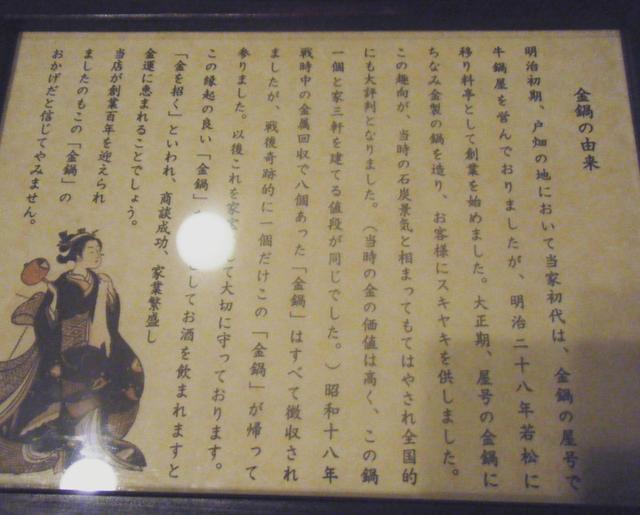 金鍋の由来
明治初期、戸畑の地において当家初代は、金鍋の屋号で
牛鍋屋を営んでおりましたが、明治二十八年若松に
移り料亭として創業を始めました。大正期、屋号の金鍋に
ちなみ金製の鍋を造り、お客様にスキヤキを供しました。
この趣向が、当時の石炭景気と相まってもてはやされ全国的
にも大評判となりました。（当時の金の価値は高く、この鍋
一個と家三軒を建てる値段が同じでした。）昭和十八年
戦時中の金属回収で八個あった「金鍋」はすべて徴収され
ましたが、戦後奇跡的に一個だけこの「金鍋」が帰って
参りました。以後これを家宝として大切に守っております。
この縁起の良い「金鍋」してお酒を飲まれますと
「金を招く」といわれ、商談成功、家業繁盛し
金運に恵まれることでしょう。
当店が創業百年を迎えられ
ましたのもこの「金鍋」の
おかげだと信じてやみません。